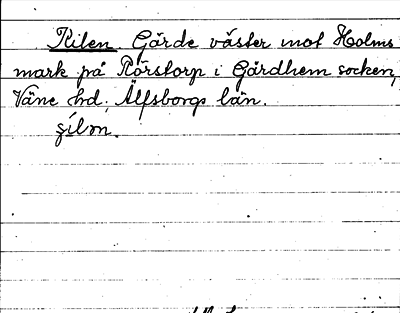 Kilen. Gärde väster mot Holms
mark på Rörstorp i Gärdhem socken,
Väne hd. Älfsborgs län.